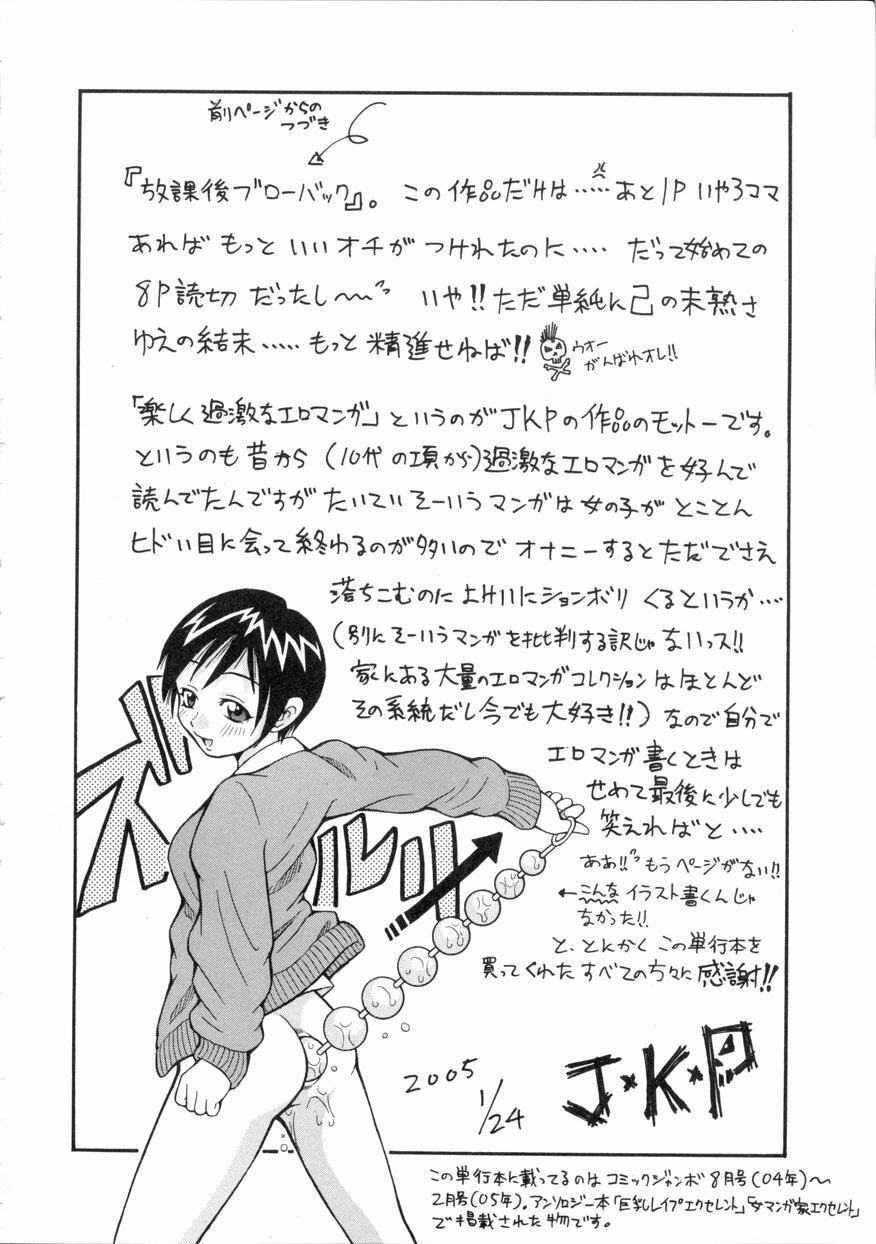 前ページからの
つづき
『放課後ブローバック』。この作品だけは……あと1P いやろママ
あればもっといいオチがつけれたのに…. だって始めての
8P読切だったし〜〜 いや!!ただ単純に己の未熟さ
ゆえの結末…… もっと精進せねば!!
ウオー
がんばれオレ!!
「楽しく過激なエロマンガ」というのがJKPの作品のモットーです。
というのも昔から(10代の項から)過激なエロマンガを好んで
読んでたんですがたいていそーいうマンガは女の子がとことん
ヒドい目に会って終わるのが多いのでオナニーするとただでさえ
落ちこむのによけいにションボリくるというか….
(別にそーいうマンガを批判する訳じゃないっス!!
家にある大量のエロマンガコレクションはほとんど
その系統だし今でも大好き!!)なので自分で
エロマンガ書くときは
せめて最後に少しでも
笑えればと….
ああ!!もうページがない!!
←こんなイラスト書くんじゃ
なかった!!
と、とにかくこの単行本を
買ってくれたすべての方々に感謝!!
ズルルリ
2005
1/24
J・K・P
この単行本に載ってるのはコミックジャンボ8月号(04年)〜
2月号(05年)。アンソロジー本「巨乳レイプエクセレント」「女マンガ家エクセレント」
で掲載された物です。